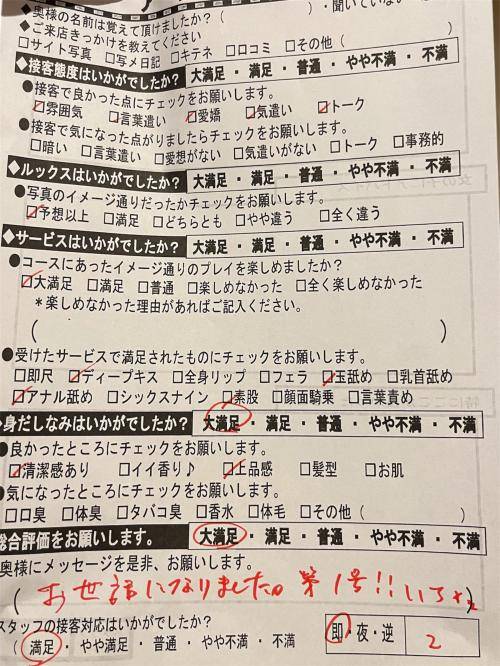 ◆奥様の名前は覚えて頂けましたか?( )・聞いていない
◆ご来店きっかけを教えてください
□サイト写真 □写メ日記 □キテネ □口コミ □その他(
◆接客態度はいかがでしたか? 大満足・満足・普通・やや不満・不満
●接客で良かった点にチェックをお願いします。
☑雰囲気 □言葉遣い ☑愛嬌 ☑気遣い ☑トーク
●接客で気になった点がりましたらチェックをお願いします。
□暗い □言葉遣い □愛想がない □気遣いがない □トーク □事務的
◆ルックスはいかがでしたか? 大満足・満足・普通・やや不満・不満
●写真のイメージ通りだったかチェックをお願いします。
☑予想以上 □満足 □どちらとも □やや違う □全く違う
◆サービスはいかがでしたか? 大満足・満足・普通・やや不満・不満
●コースにあったイメージ通りのプレイを楽しめましたか?
☑大満足 □満足 □普通 □楽しめなかった □全く楽しめなかった
*楽しめなかった理由があればご記入ください。
( )
●受けたサービスで満足されたものにチェックをお願いします。
□即尺 ☑ディープキス □全身リップ □フェラ ☑玉舐め □乳首舐め
☑アナル舐め □シックスナイン ☑素股 □顔面騎乗 □言葉責め
◆身だしなみはいかがでしたか? 大満足・満足・普通・やや不満・不満
●良かったところにチェックをお願いします。
☑清潔感あり □イイ香り♪ ☑上品感 □髪型 □お肌
●気になったところにチェックをお願いします。
□口臭 □体臭 □タバコ臭 □香水 □体毛 □その他( )
総合評価をお願いします。 大満足・満足・普通・やや不満・不満
奥様にメッセージを是非、お願いします。
(お世話になりました。第1号!!
スタッフの接客対応はいかがでしたか?
(満足・やや満足・普通・やや不満・不満
即・夜・逆 2